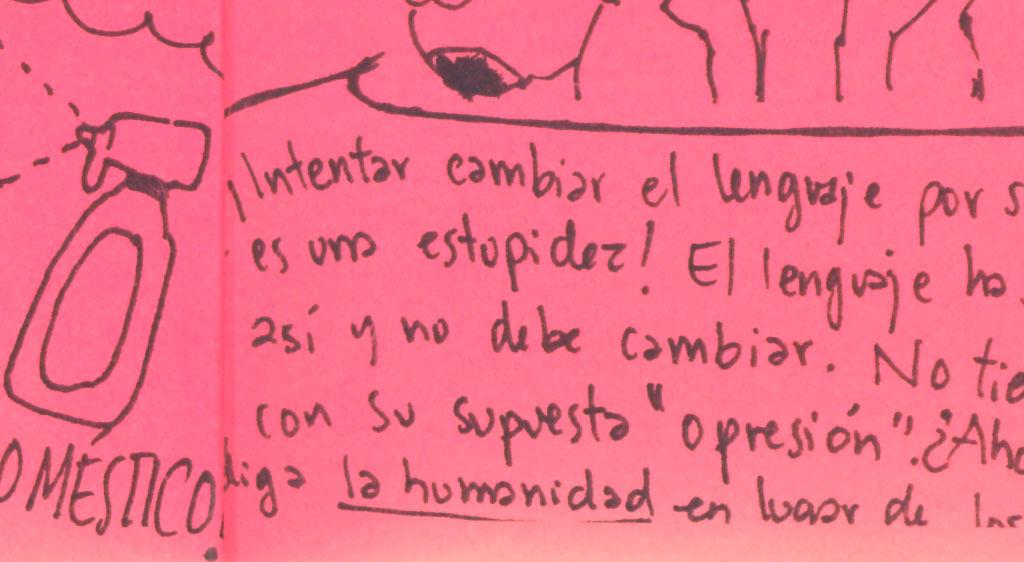 ¡Intentar cambiar el lenguaje por
es una estupidez! El lenguaje ha
así y no debe cambiar. No
con su supuesta "opresión". ¿
diga la humanidad en lugar de
OMÉSTICO